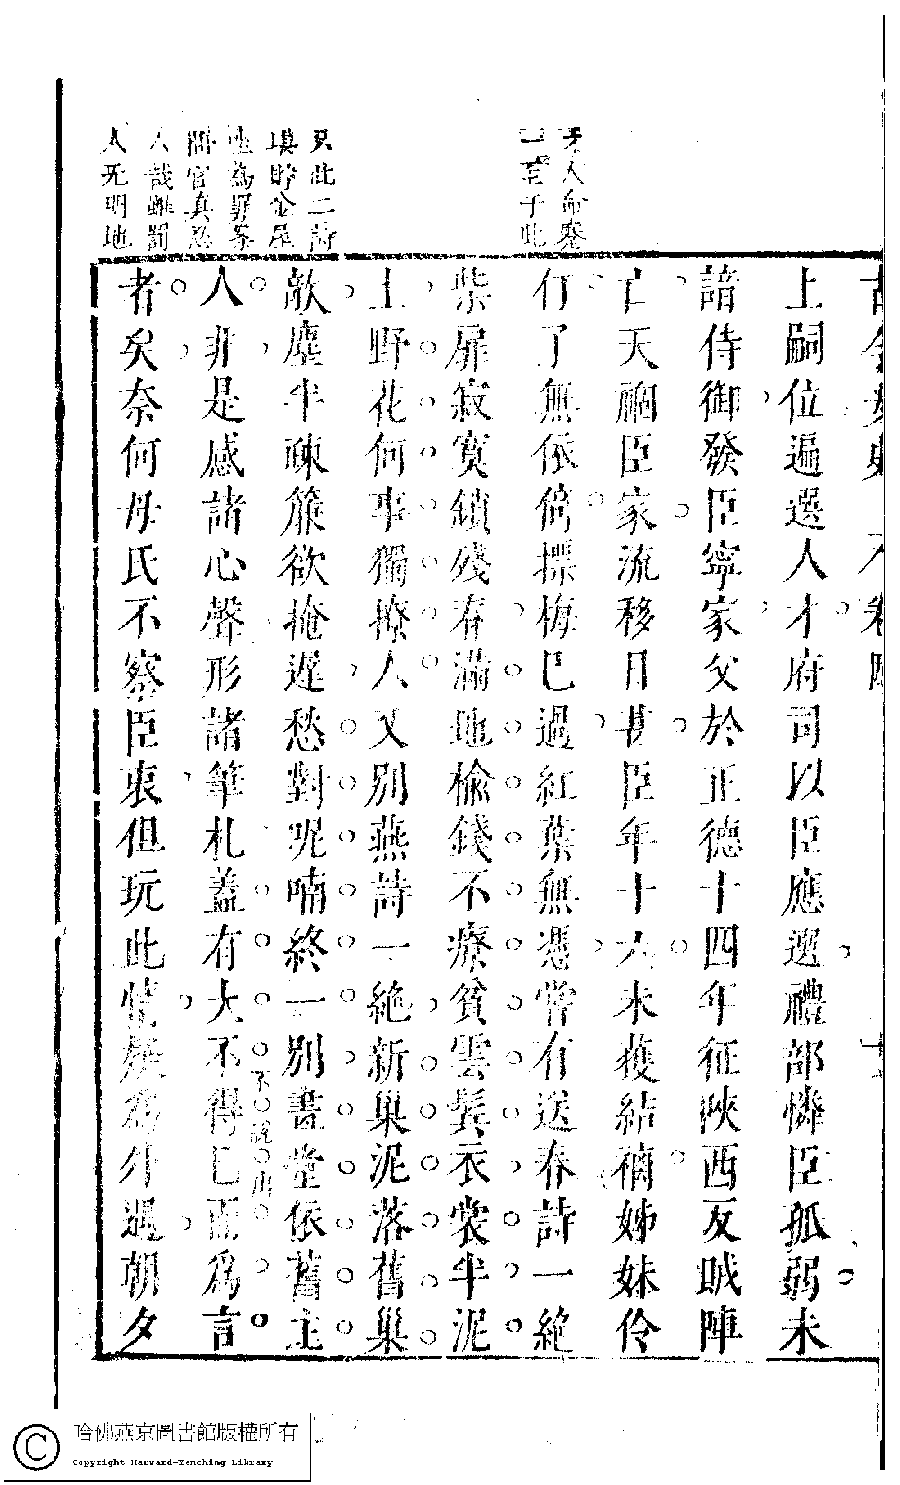 上嗣位遍選人才府司以臣應選禮部憐臣孤弱未
諳侍御發臣寧家父於正德十四年征陝西反賊陣
亡天禍臣家流移日甚臣年十六未獲結褵姊妹伶
仃了無依倚摽梅已過紅葉無憑嘗有送春詩一絶
柴扉寂寞鎖殘春滿地榆錢不療貧雲鬂衣裳半泥
土野花何事獨撩人又別燕詩一絶新巢泥落舊巢
敧塵半疎簾欲掩遲愁對呢喃終一別畵堂依舊主
人非是感諸心聲形諸筆札盖有大不得已而爲言
者矣奈何母氏不察臣衷但玩此情疑爲外遇朝夕
只此二詩
人死明地
哈佛燕京圖書館版權所有
Copyright Harvard-Yenching Library